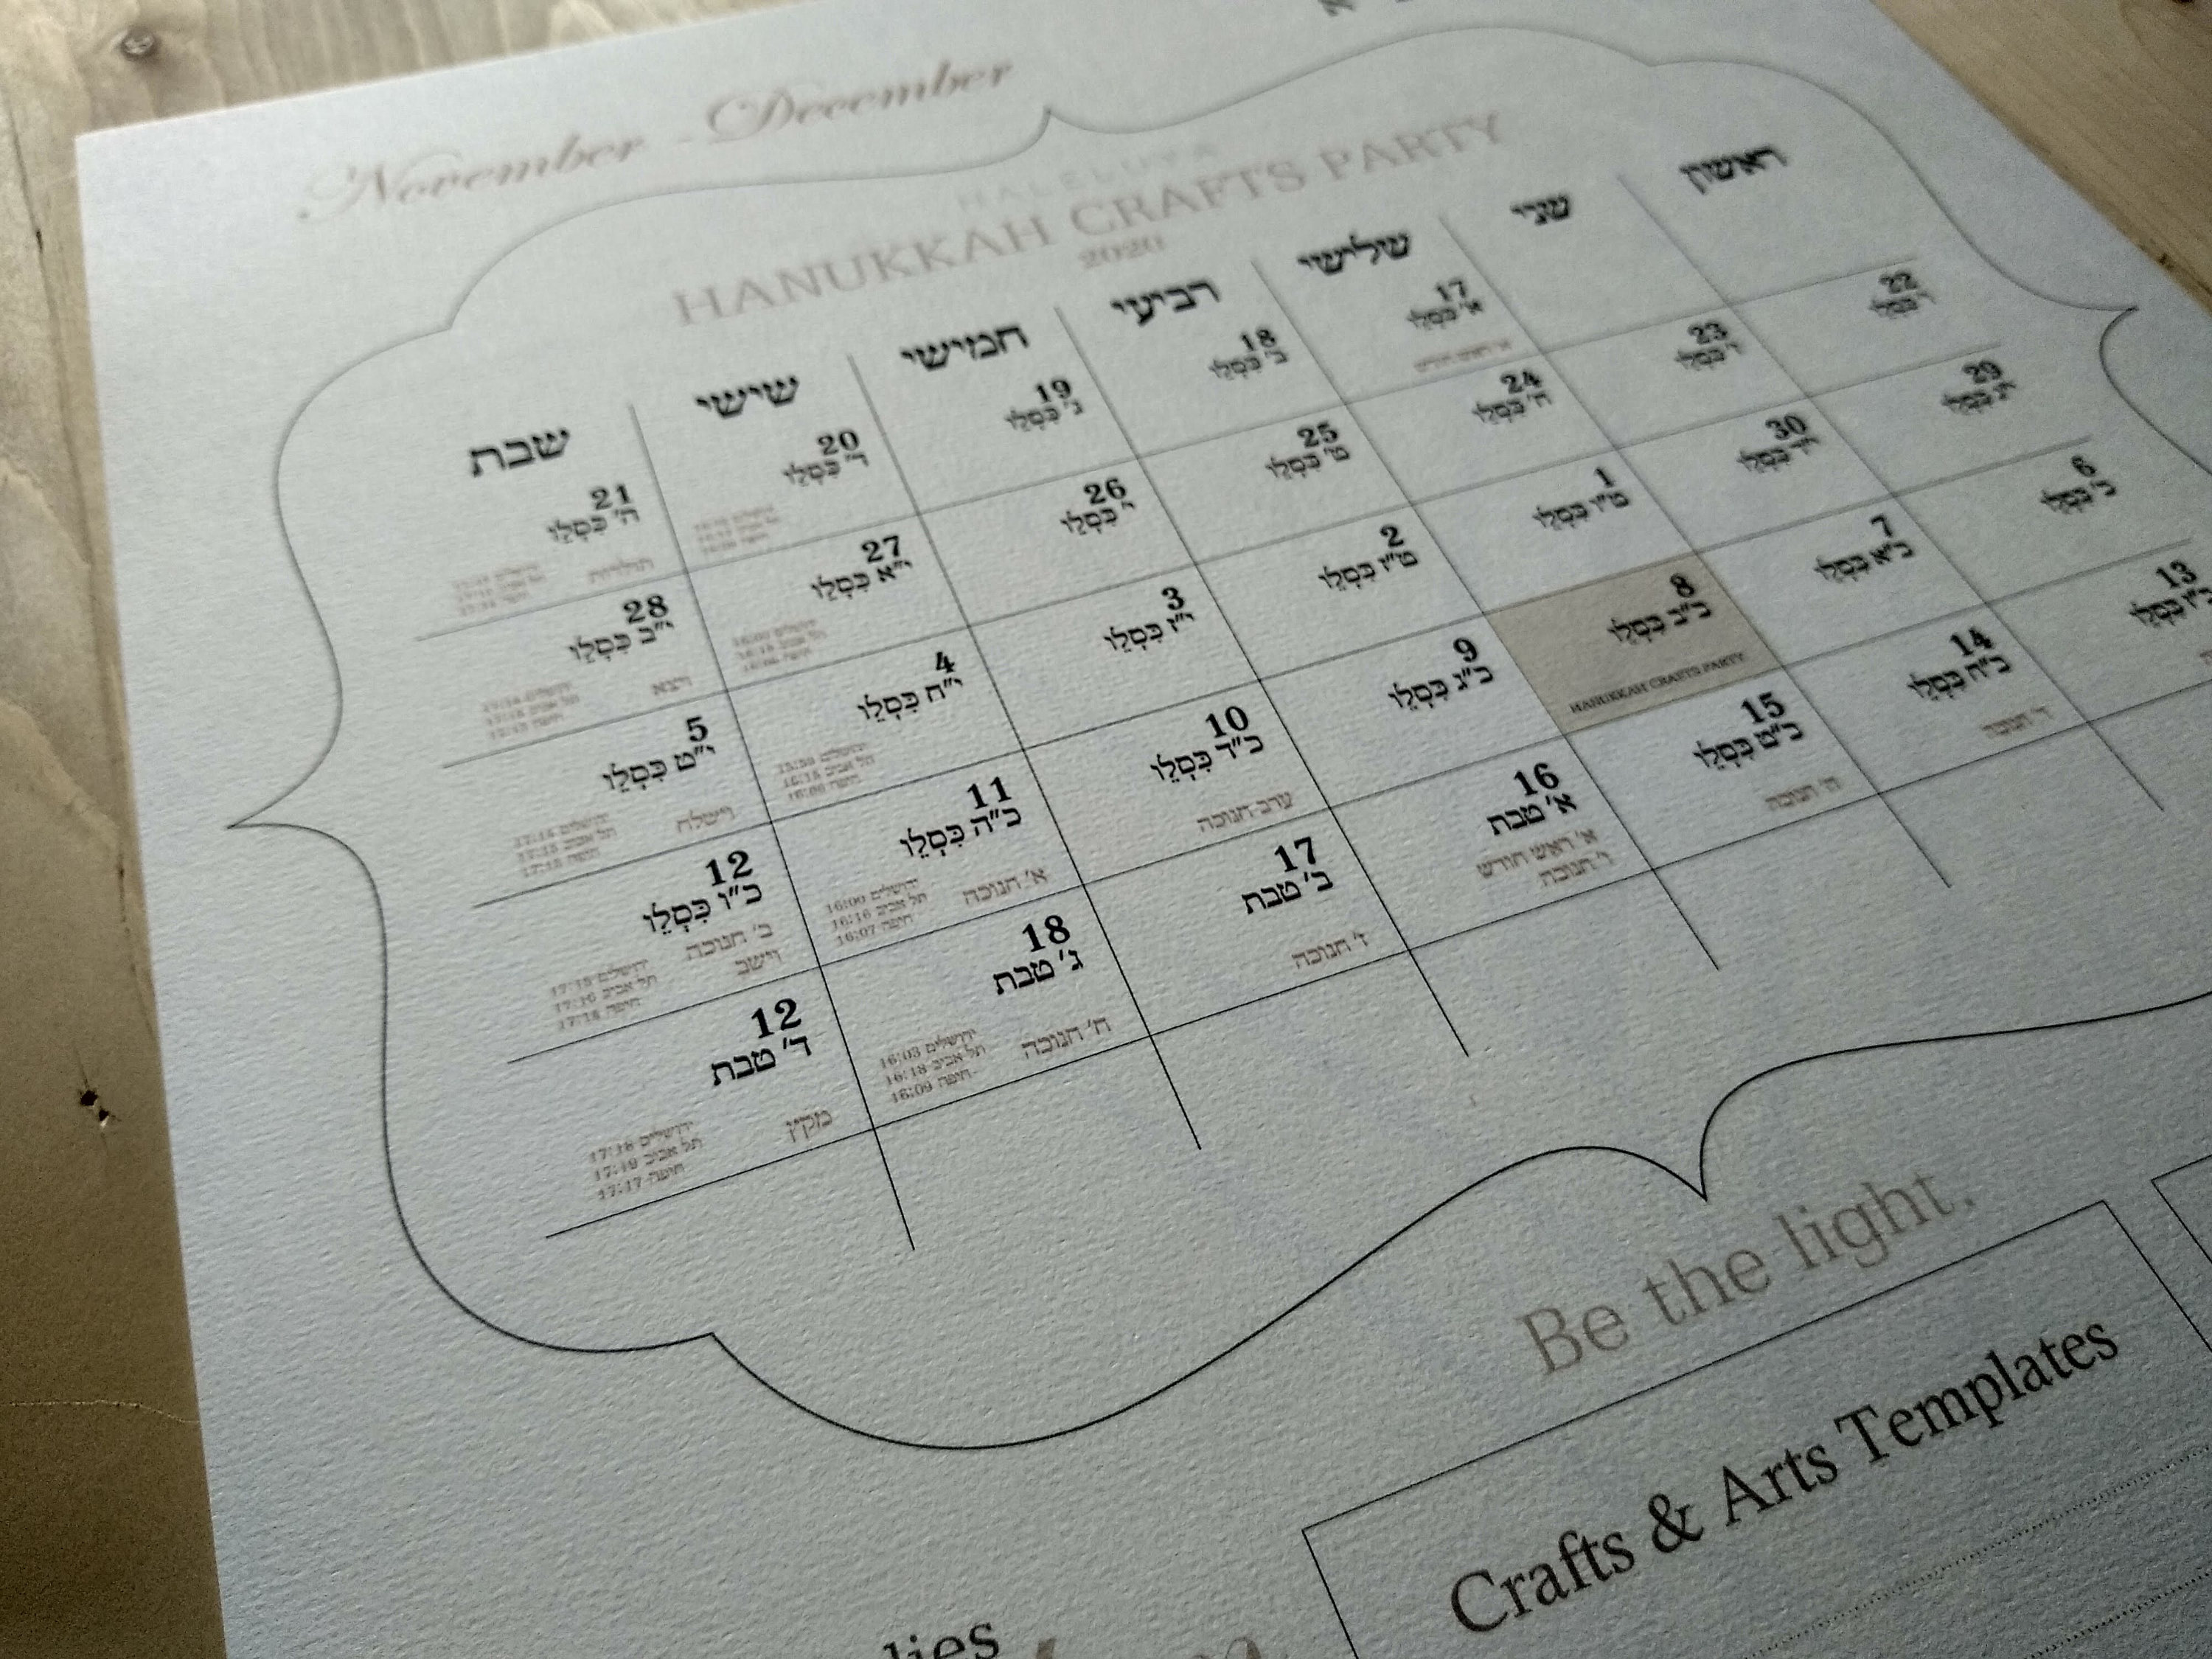 November - December
HALELUYA
HANUKKAH CRAFTS PARTY
2020
ראשון
שני
שלישי
רביעי
חמישי
שישי
שבת
17
א' כִּסְלֵו
א' ראש חודש
18
ב' כִּסְלֵו
19
ג' כִּסְלֵו
20
ד' כִּסְלֵו
21
ה' כִּסְלֵו
תולדות
22
ו' כִּסְלֵו
23
ז' כִּסְלֵו
24
ח' כִּסְלֵו
25
ט' כִּסְלֵו
26
י' כִּסְלֵו
27
י"א כִּסְלֵו
28
י"ב כִּסְלֵו
ויצא
29
י"ג כִּסְלֵו
30
י"ד כִּסְלֵו
1
ט"ו כִּסְלֵו
2
ט"ז כִּסְלֵו
3
י"ז כִּסְלֵו
4
י"ח כִּסְלֵו
ירושלים 15:59
תל אביב 16:15
חיפה 16:06
5
י"ט כִּסְלֵו
וישלח
6
כ' כִּסְלֵו
7
כ"א כִּסְלֵו
8
כ"ב כִּסְלֵו
HANUKKAH CRAFTS PARTY
9
כ"ג כִּסְלֵו
10
כ"ד כִּסְלֵו
ערב חנוכה
11
כ"ה כִּסְלֵו
א' חנוכה
ירושלים 16:00
תל אביב 16:16
חיפה 16:07
12
כ"ו כִּסְלֵו
ב' חנוכה
וישב
ירושלים 17:15
תל אביב 17:16
חיפה 17:14
13
כ"ז כִּסְלֵו
14
כ"ח כִּסְלֵו
ד' חנוכה
15
כ"ט כִּסְלֵו
ה' חנוכה
16
א' טבת
א' ראש חודש
ו' חנוכה
17
ב' טבת
ז' חנוכה
18
ג' טבת
ח' חנוכה
ירושלים 16:03
תל אביב 16:18
חיפה 16:09
12
ד' טבת
מקץ
ירושלים 17:18
תל אביב 17:19
חיפה 17:17
Be the light.
Crafts & Arts Templates